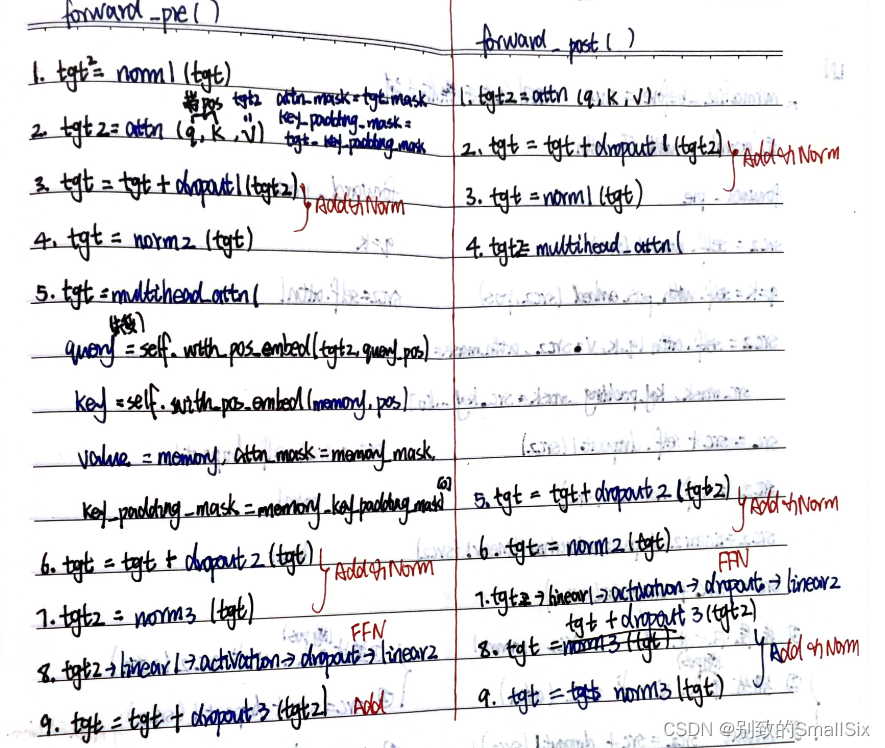 forward_pre()
1. tgt2 = norm1(tgt)
pos tgt2 attn_mask=tgt_mask
2. tgt2=attn (q, k, v) key_padding_mask=
tgt_key_padding_mask
3. tgt = tgt + dropout1(tgt2)
Add & Norm
4. tgt = norm2 (tgt)
5. tgt =multihead_attn(
query = self.with_pos_embed(tgt2, query_pos)
key = self.with_pos_embed(memory, pos)
value = memory, attn_mask=memory_mask,
key_padding_mask=memory_key_padding_mask)[0]
6. tgt = tgt + dropout2(tgt)
Add & Norm
7. tgt2 = norm3 (tgt)
FFN
8. tgt2→linear1→activation→dropout→linear2
9. tgt = tgt + dropout3(tgt2) Add
forward_post()
1. tgt2=attn (q, k, v)
2. tgt = tgt+dropout1(tgt2)
Add & Norm
3. tgt =norm1(tgt)
4. tgt2= multihead_attn(
5. tgt = tgt+dropout2(tgt2)
Add & Norm
6. tgt = norm2(tgt)
FFN
7. tgt2→linear1→activation→dropout→linear2
tgt + dropout3(tgt2)
8. tgt = norm3(tgt)
Add & Norm
9. tgt = tgt norm3(tgt)
CSDN @别致的SmallSix